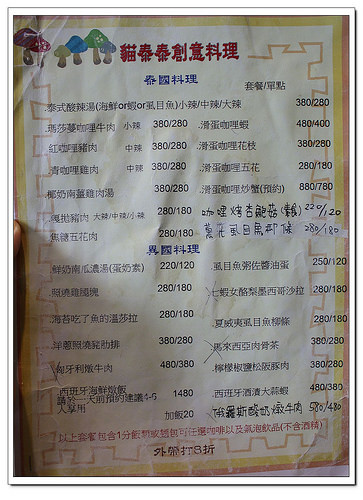 貓泰泰創意料理
泰國料理
套餐/單點
.泰式酸辣湯(海鮮or蝦or虱目魚)小辣/中辣/大辣 380/280
.瑪莎蔓咖哩牛肉 小辣 380/280
.滑蛋咖哩蝦 480/400
.紅咖哩豬肉 中辣 380/280
.滑蛋咖哩花枝 380/280
.青咖哩雞肉 中辣 380/280
.滑蛋咖哩五花 280/180
.椰奶南薑雞肉湯 380/280
.滑蛋咖哩炒蟹(預約) 880/780
.嘎拋豬肉 大辣/中辣/小辣 280/180
咖哩烤杏鮑菇(素) 220/120
.焦糖五花肉 280/180
蔥花虱目魚柳條 280/180
異國料理
.鮮奶南瓜濃湯(蛋奶素) 220/120
.虱目魚粥佐醬油蛋 250/120
.照燒雞腿塊 280/180
.七蝦女酪梨墨西哥沙拉 280/180
.海苔吃了魚的溫莎拉 280/180
.夏威夷虱目魚柳條 280/180
.洋蔥照燒髮肋排 380/280
.馬來西亞肉骨茶 380/280
.匈牙利燉牛肉 480/380
.檸檬椒鹽松阪豚肉 380/280
.西班牙海鮮燉飯 1480
請於一天前預約建議4-6人享用 加飯20
.西班牙酒漬大蒜蝦 480/380
俄羅斯酸奶燉牛肉 580/480
*以上套餐包含1分飯類或麵包可任選咖啡以及氣泡飲品(不含酒精)
外帶打8折